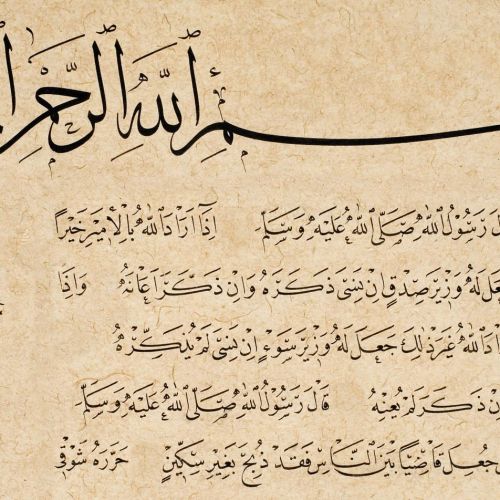 سم الله الرحمن ا
ل رسول الله صلى الله عليه وسلم إذا أراد الله بالأمير خيرا
عل له وزير صدق إن نسي ذكره وإن ذكر أعانه وإذا
اد الله غير ذلك جعل له وزير سوء إن نسي لم يذكره
ن ذكر لم يعنه قال رسول الله صلى الله عليه وسلم
جعل قاضيا بين الناس فقد ذبح بغير سكين حرره شوقي